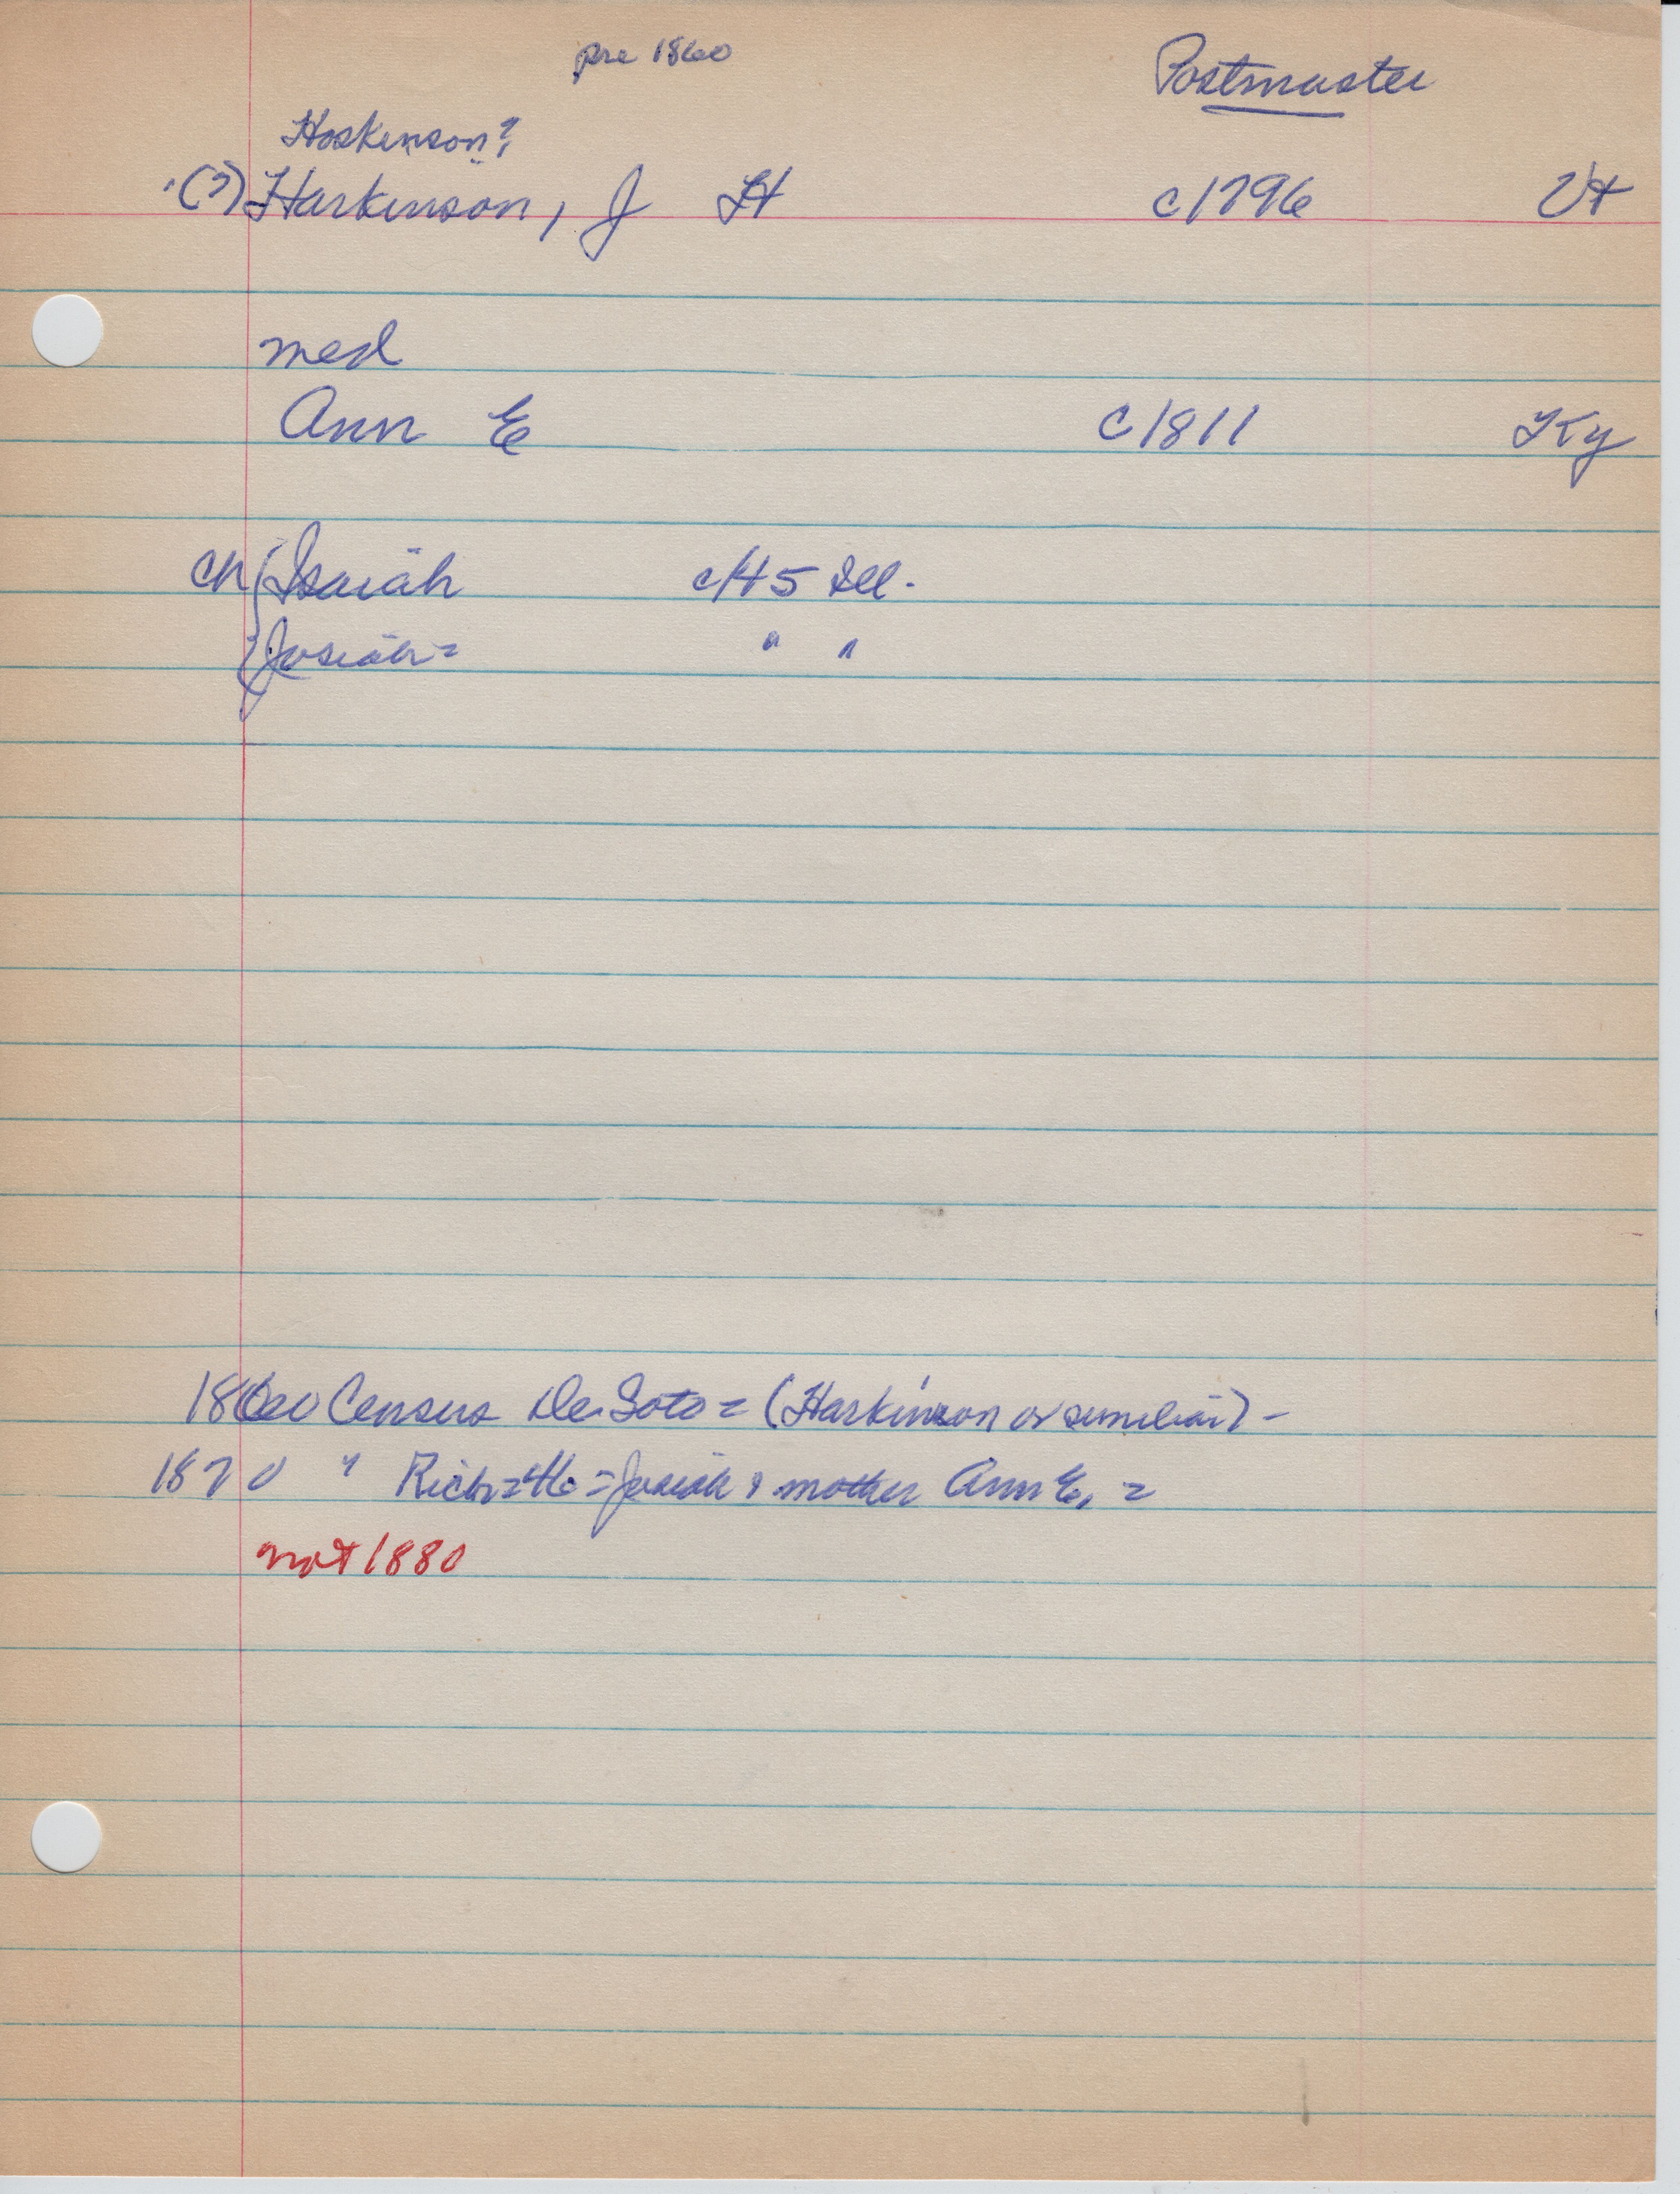 pre 1860
Postmaster
Hoskenson?
(?) Harkinson, J H c1796 Vt
med
Ann E c1811 Ky
ch { Isaiah c/45 Ill.
Josiah = " "
1860 Census De Soto = (Harkinson or similiar) -
1870 " Rich = = Josiah & mother Ann E. =
not 1880